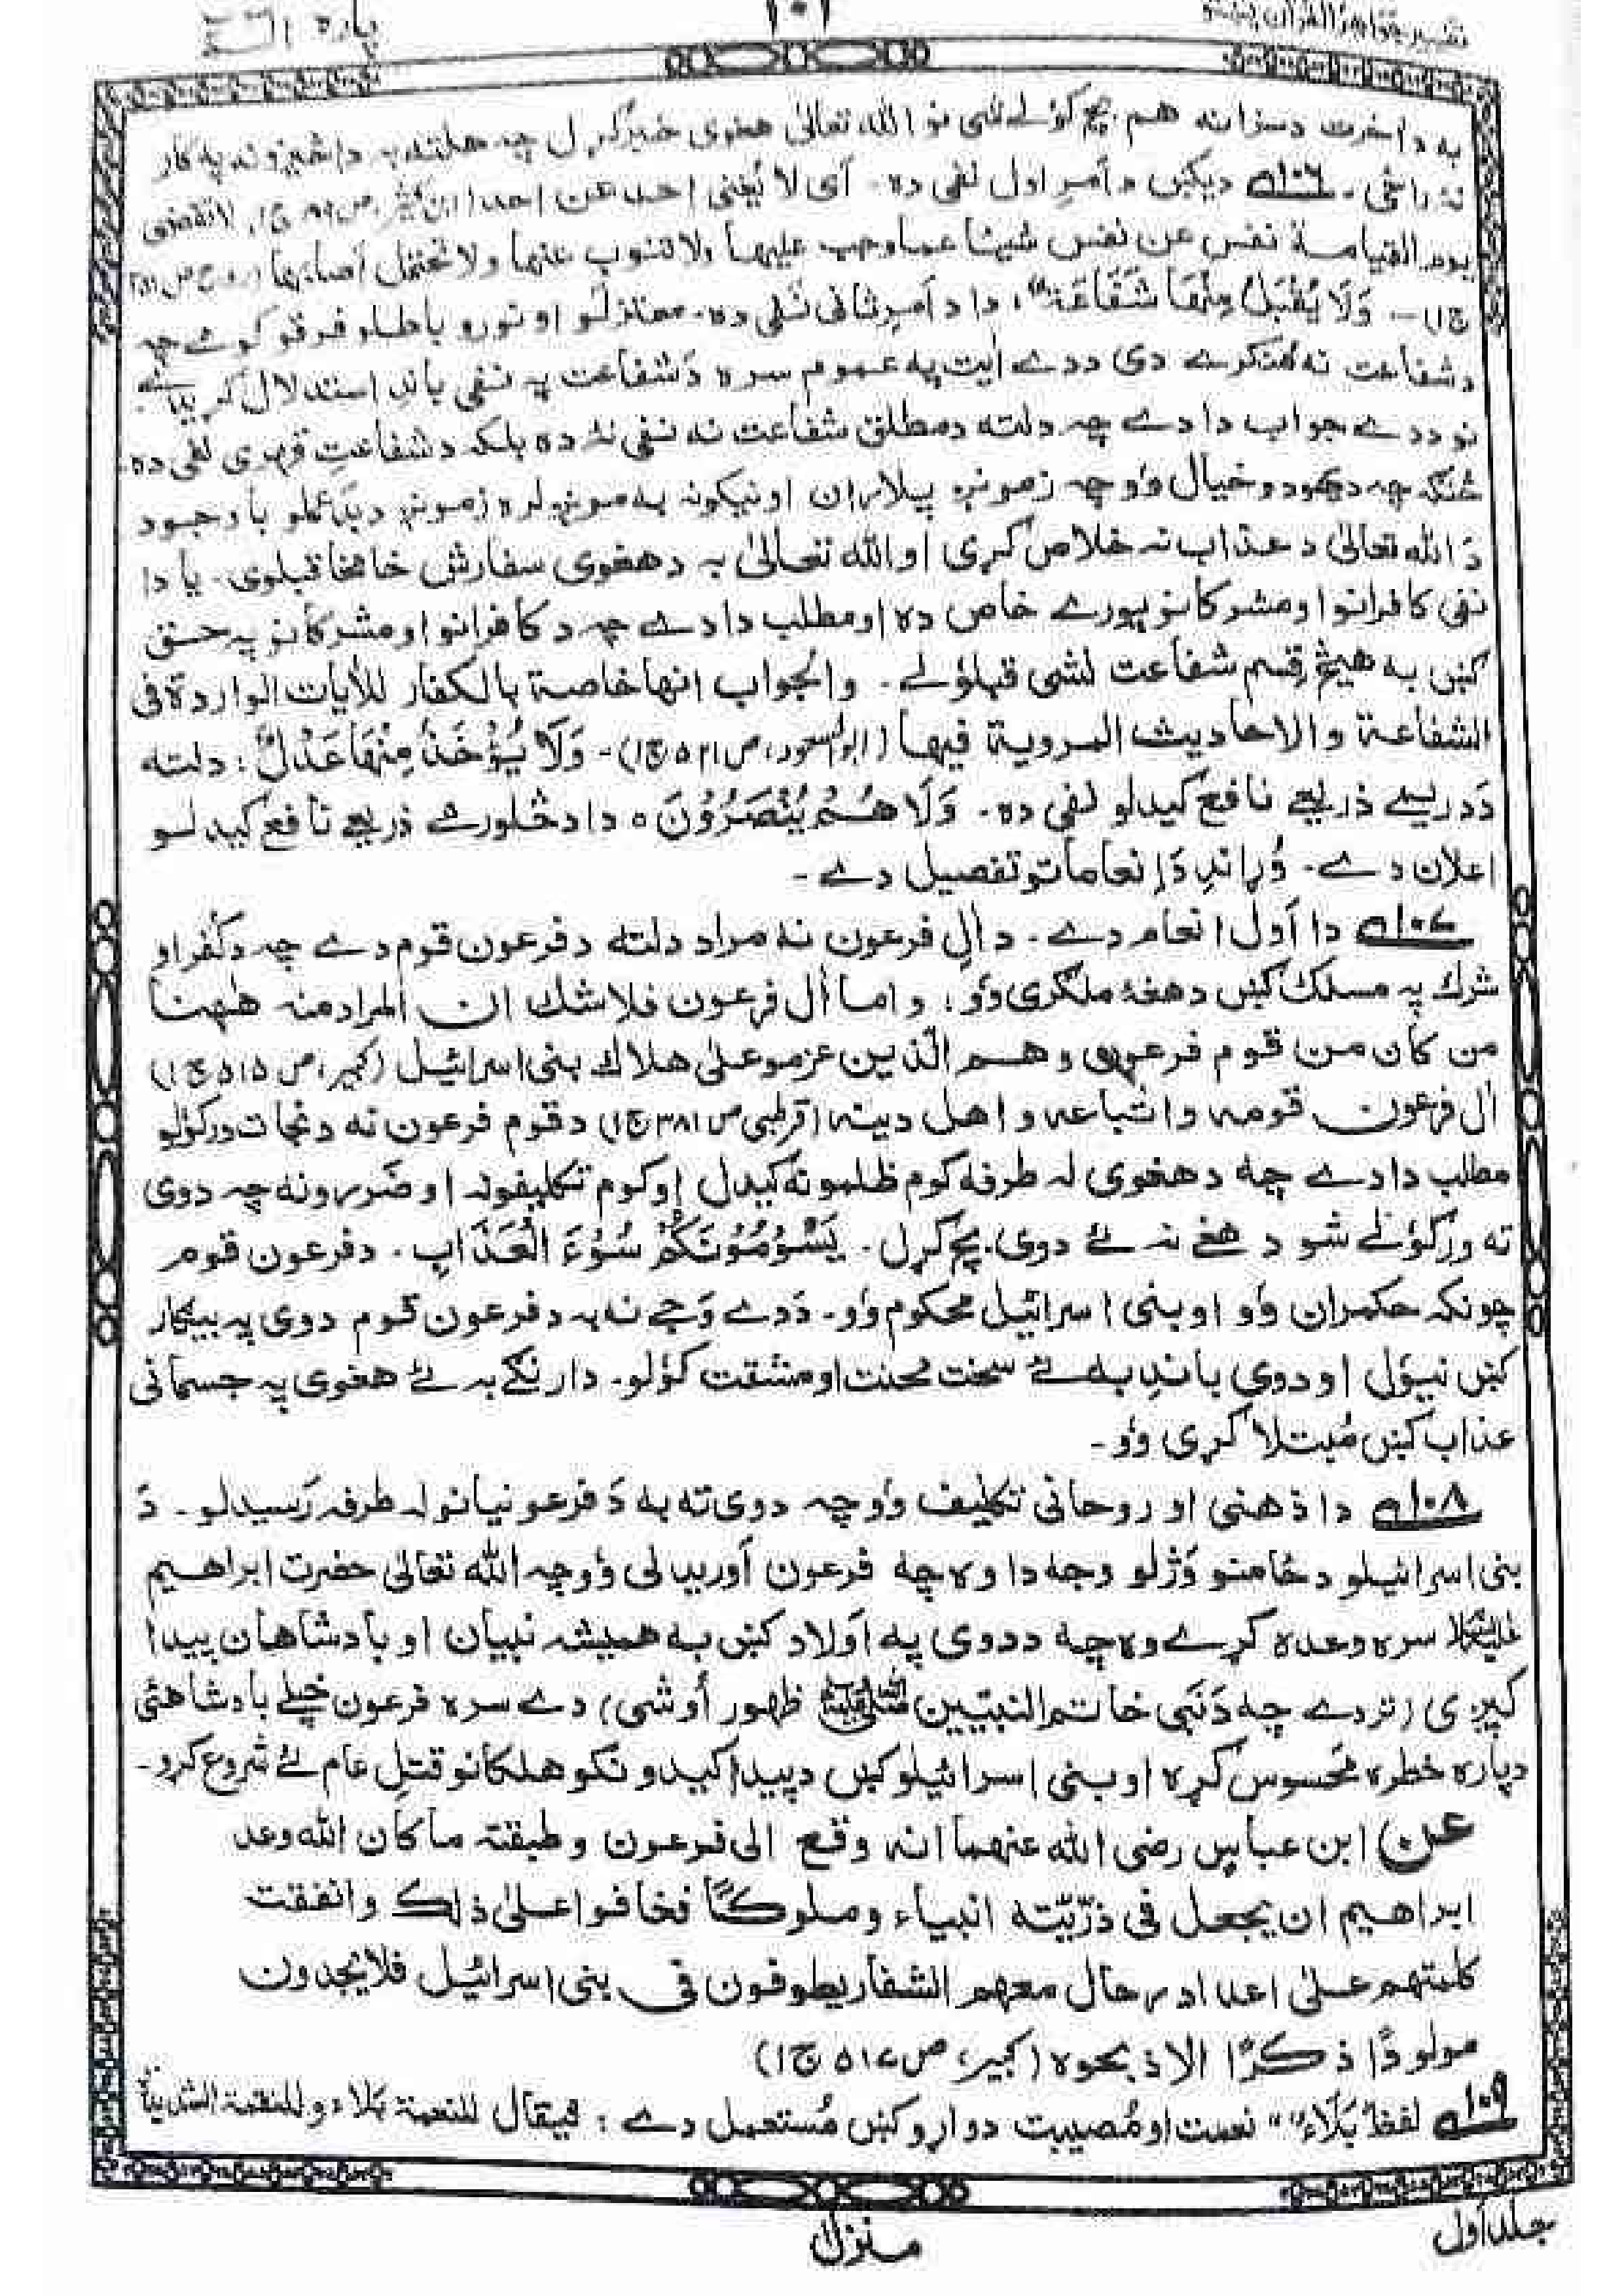 تفسير جواهرالقرآن پښتو
١٠١
پاره الٓـمّٓ
به د اخرت د سزا نه هم بچ کؤلے شی نو الله تعالیٰ هغوی خبر کړل چه هلته به دا شمیزونه په کار
نه راځی۔ ١٠٦ه دیکښ د اَمرِ اول نفی ده۔ اَی لا یُغنی احد عن احد (ابن کثیر، ص ٨٩ ج١)، لا تقضی
یوم القیامة نفس عن نفس شیئا مما وجب علیها ولا تنوب عنها ولا تحتمل مما اصابها (روح ص ٢٥١
ج١)۔ وَلَا یُقْبَلُ مِنْهَا شَفَاعَةٌ، دا د اَمرِ ثانی نفی ده۔ معتزلو او نورو باطلو فرقو کوم چه
د شفاعت نه منکرے دی ددے ایت په عموم سره دَ شفاعت په نفی باندِ استدلال کړیدے
نو ددے جواب دا دے چه دلته د مطلق شفاعت نه نفی نه ده بلکه د شفاعتِ قهری نفی ده۔
څنګه چه د یهودو خیال وٗو چه زمونږه پیلاران او نیکونه به مونږ لره زمونږه د بدعملو باوجود
دَ الله تعالیٰ د عذاب نه خلاص کړی او الله تعالیٰ به د هغوی سفارش خامخا قبلوی۔ یا دا
نفی کافرانو او مشرکانو پورے خاص ده او مطلب دا دے چه د کافرانو او مشرکانو په حق
کښ به هیڅ قسم شفاعت نشی قبلؤلے۔ والجواب انها خاصة بالکفار للأیات الواردة فی
الشفاعة والاحادیث المرویة فیها (ابوالسعود، ص ٥٢١ ج١)۔ وَلَا یُؤْخَذُ مِنْهَا عَدْلٌ؛ دلته
دَ دریمے ذریعے نافع کیدلو نفی ده۔ وَلَا هُمْ یُنْصَرُوْنَ ٥ دا د څلورمے ذریعے نافع کیدلو
اعلان دے۔ وُړاندِ دَ اِنعاماتو تفصیل دے۔
١٠٧ه دا اَول انعام دے۔ د اٰلِ فرعون نه مراد دلته د فرعون قوم دے چه د کفر او
شرک په مسلک کښ د هغهٔ ملګری وٗو؛ واما اٰل فرعون فلا شک ان المراد منه هٰهنا
من کان من قوم فرعون وهم الّذین عزمو علیٰ هلاک بنی اسرائیل (کبیر، ص ٥١٥ ج١)
اٰل فرعون قومه واتباعه و اهل دینه (قرطبی ص ٣٨١ ج١) د قوم فرعون نه د نجات ورکؤلو
مطلب دا دے چه د هغوی له طرفه کوم ظلمونه کیدل او کوم تکلیفونه او ضررونه چه دوی
ته ورکؤلے شو د هغے نه ئے دوی بچ کړل۔ یَسُوْمُوْنَکُمْ سُوْٓءَ الْعَذَابِ۔ د فرعون قوم
چونکه حکمران وٗو او بنی اسرائیل محکوم وٗو۔ دَدے وَجے نه به د فرعون قوم دوی په بیګار
کښ نیؤل او دوی باندِ به ئے سخت محنت او مشقت کؤلو۔ دارنګے به ئے هغوی په جسمانی
عذاب کښ مُبتلا کړی وٗو۔
١٠٨ه دا ذهنی او روحانی تکلیف وٗو چه دوی ته به دَ فرعونیانو له طرفه رَسیدلو۔ دَ
بنی اسرائیلو د ځامنو وَژلو وجه دا وه چه فرعون اَوریدلی وٗو چه الله تعالیٰ حضرت ابراهیم
علیه السلام سره وعده کړے وه چه د دوی په اَولاد کښ به همیشه نبیان او بادشاهان پیدا
کیږی (تردے چه دَ نَبی خاتم النبیّین ﷺ ظهور اُوشی) دے سره فرعون خپلے بادشاهئی
دپاره خطره محسوس کړه او بنی اسرائیلو کښ د پیدا کیدونکو هلکانو قتلِ عام ئے شروع کړو۔
عن ابن عباس رضی الله عنهما انه وقع الی فرعون وطبقته ما کان الله وعد
ابراهیم ان یجعل فی ذرّیّته انبیاء وملوکًا فخافوا علیٰ ذلک واتفقت
کلمتهم علیٰ اعداد رجال معهم الشفار یطوفون فی بنی اسرائیل فلا یجدون
مولودًا ذکرًا الا ذبحوه (کبیر، ص ٥١٧ ج١)
١٠٩ه لفظ "بَلَآءٌ" نعمت او مُصیبت دواړو کښ مُستعمل دے؛ فیقال للنعمة بلاء وللنقمة الشدیدة
جلد اَول
منزل